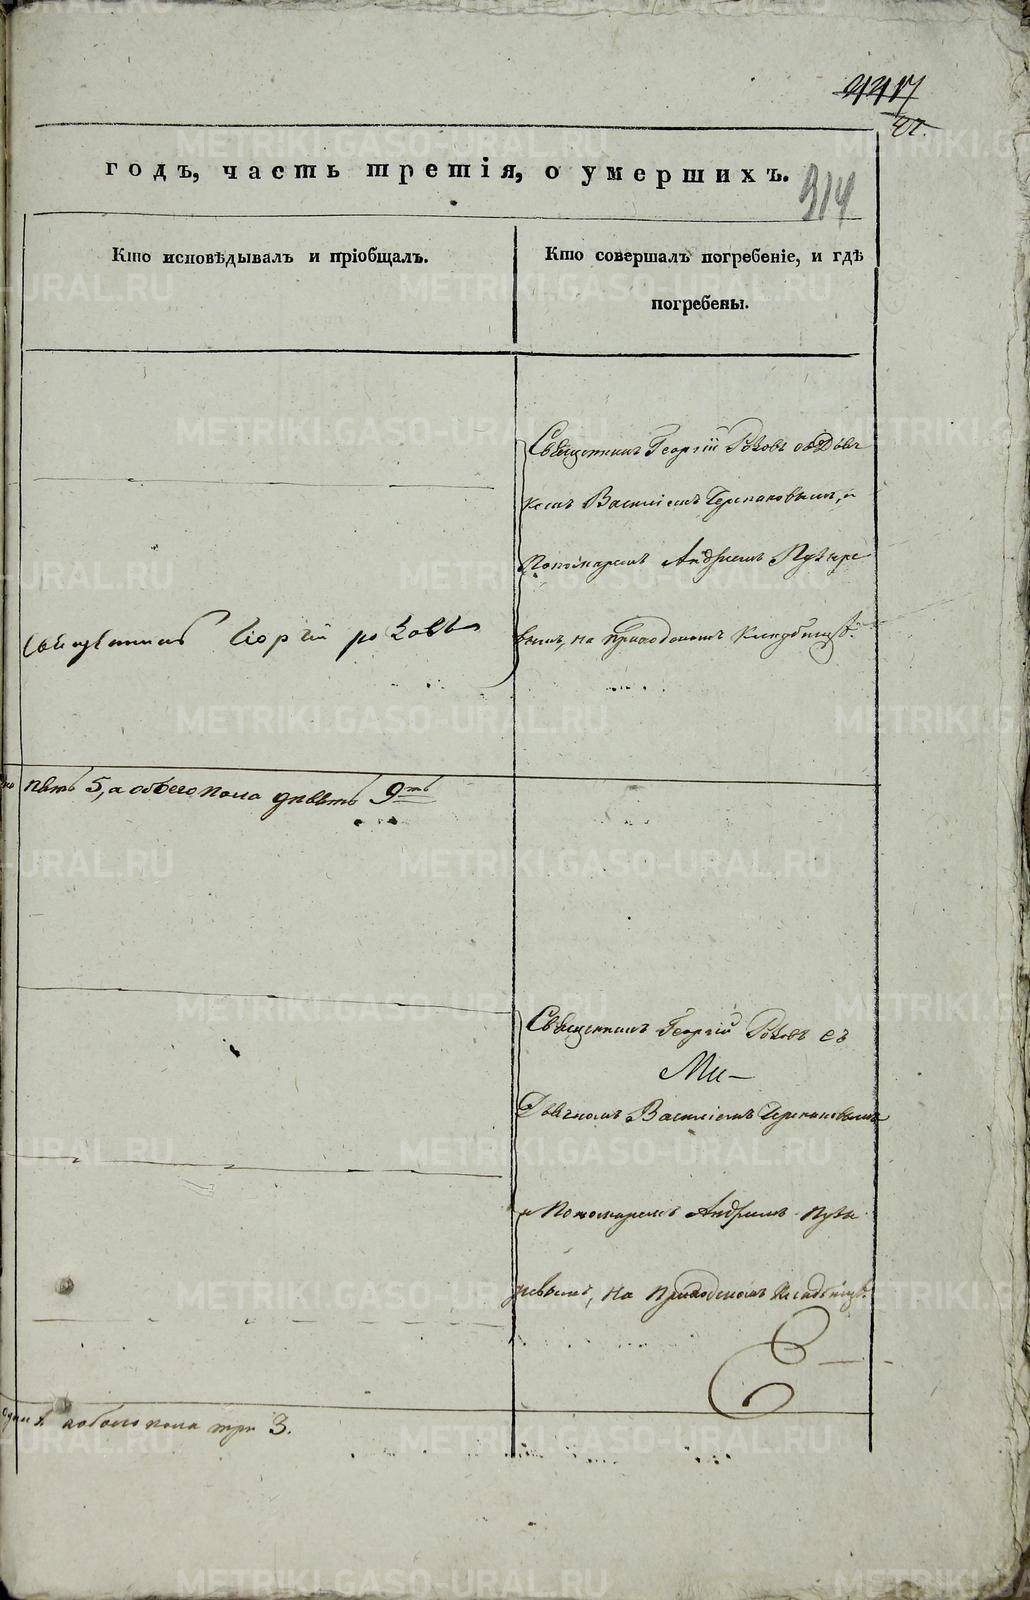 42.
годъ, часть третія, о умершихъ.
314
Кто исповѣдывалъ и пріобщалъ.
Кто совершалъ погребеніе, и гдѣ
погребены.
Священникъ Георгій Роковъ съ Дьяч
комъ Василіемъ Черпаковымъ, и
Пономаремъ Андреемъ Пузыре
вымъ, на приходскомъ кладбищѣ.
Священникъ Георгій Роковъ
пять 5, а обоего пола девять 9ть
Священникъ Георгій Роковъ съ
Ми—
Дьячкомъ Василіемъ Черпаковымъ
и Пономаремъ Андреемъ Пузы
ревымъ, на приходскомъ кладбищѣ.
одинъ а обоего пола три 3.
METRIKI.GASO-URAL.RU